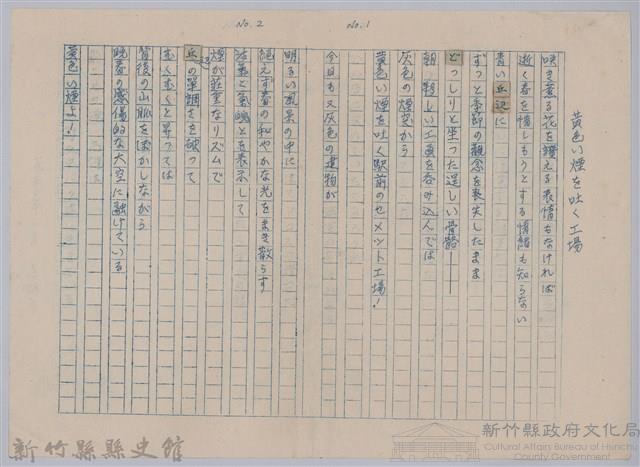 No. 2
No. 1
黄色い煙を吐く工場
咲き薫る花を讃える表情もなければ
逝く春を惜しもうとする情緒も知らない
青い丘辺に
ずっと季節の観念を喪失したまま
どっしりと坐った逞しい骨骼――
朝 物しい工員を呑み込んでは
灰色の煙突から
黄色い煙を吐く駅前のセメント工場！
今日も又灰色の建物が
明るい風景の中に
絶えず春の和やかな光をまき散らす
活気と気魄とを表示して
煙が荘重なリズムで
丘辺の単調さを破って
むくむくと昇っては
背後の山脈をぼかしながら
晩春の感傷的な大空に融けている
黄色い煙よ！
新竹縣縣史館
新竹縣政府文化局
Cultural Affairs Bureau of Hsinchu
County Government